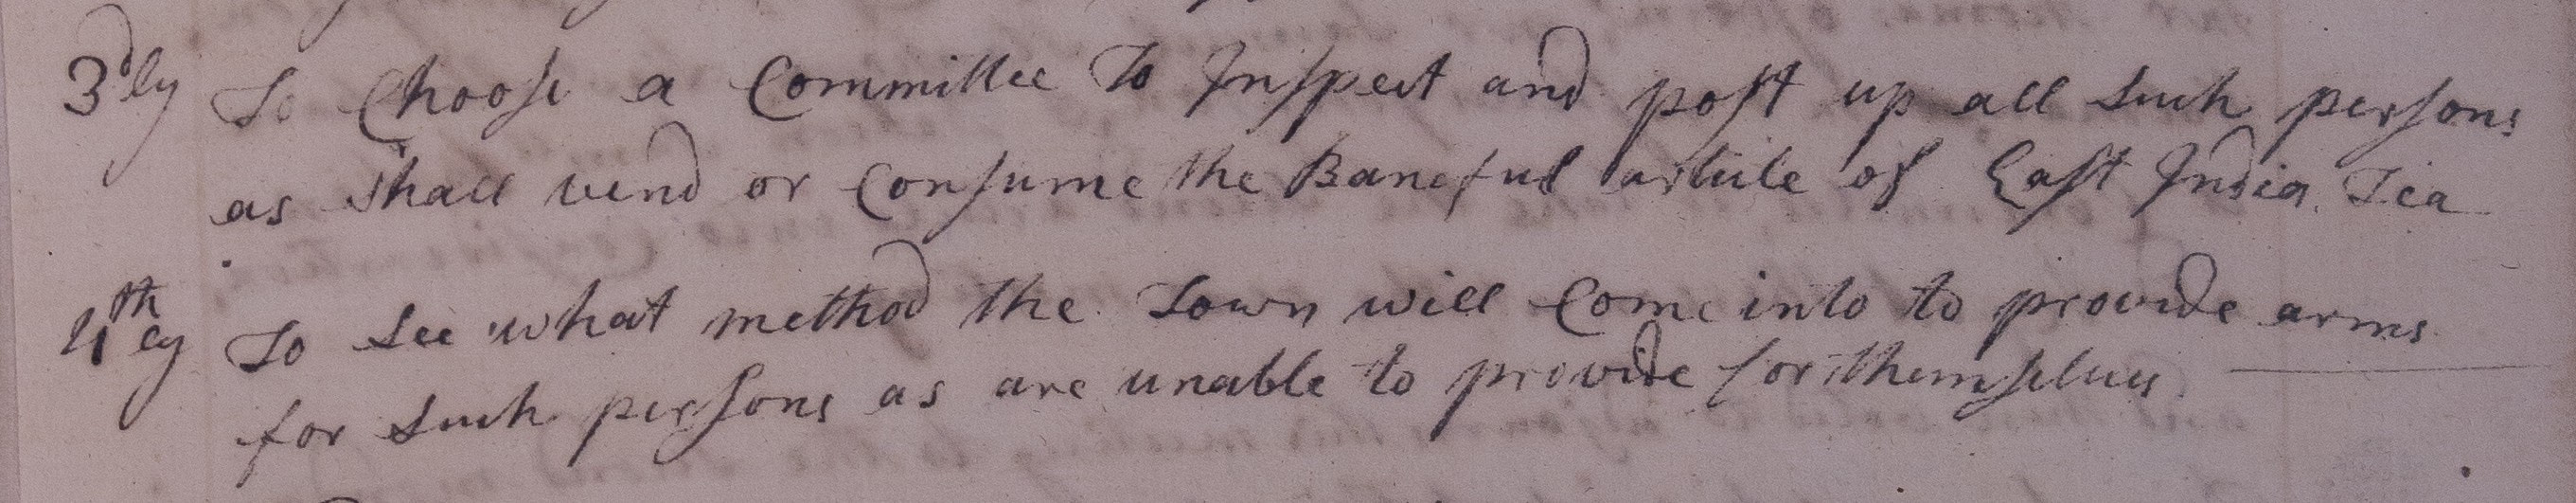 3dly To Choose a Committee To Inspect and post up all Such persons
as shall vend or Consume the Baneful article of East India Tea
4thly To See what method the Town will Come into to provide arms
for Such persons as are unable to provide for themselves